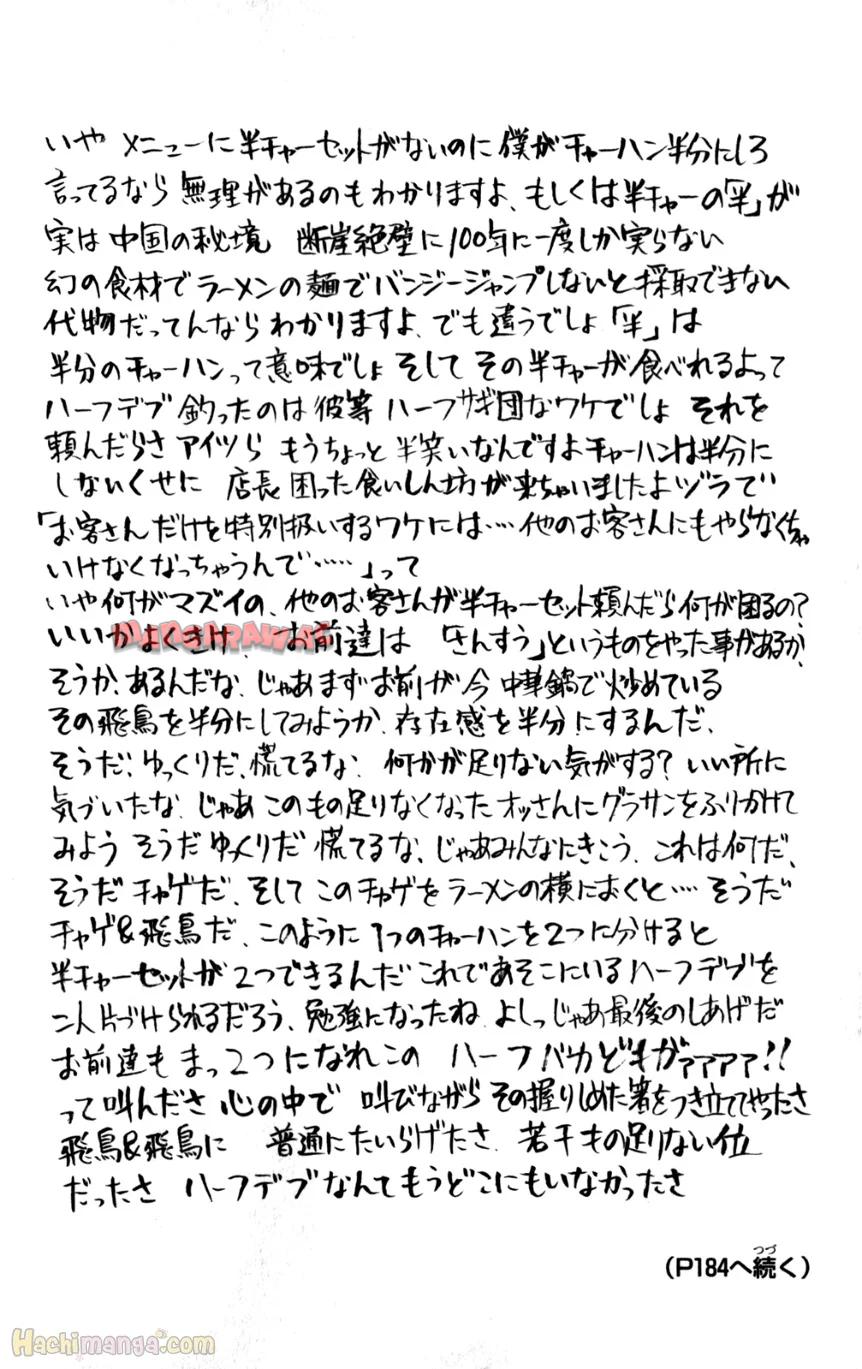 いや メニューに半チャーセットがないのに僕がチャーハン半分にしろ
言ってるなら無理があるのもわかりますよ、もしくは半チャーの「半」が
実は中国の秘境 断崖絶壁に100年に一度しか実らない
幻の食材でラーメンの麺でバンジージャンプしないと採取できない
代物だってんならわかりますよ、でも違うでしょ「半」は
半分のチャーハンって意味でしょ そして その半チャーが食べれるよって
ハーフデブ釣ったのは彼等 ハーフサギ団なワケでしょ それを
頼んだらさ アイツら もうちょっと半笑いなんですよチャーハンは半分に
しないくせに 店長困った食いしん坊が来ちゃいましたよヅラで
「お客さんだけを特別扱いするワケには…他のお客さんにもやらなくちゃ
いけなくなっちゃうんで……」って
いや何がマズイの、他のお客さんが半チャーセット頼んだら何が困るの?
いいかよくきけ、お前達は 「さんすう」というものをやった事があるか、
そうか、あるんだな、じゃあまずお前が今 中華鍋で炒めている
その飛鳥を半分にしてみようか、存在感を半分にするんだ、
そうだ、ゆっくりだ、慌てるな、何かが足りない気がする?いい所に
気づいたな、じゃあこのもの足りなくなったオッさんにグラサンをふりかけて
みよう そうだ ゆっくりだ 慌てるな、じゃあみんなにきこう、これは何だ、
そうだ チャゲだ、そして このチャゲをラーメンの横におくと…そうだ
チャゲ&飛鳥だ、このように1つのチャーハンを2つに分けると
半チャーセットが2つできるんだ これであそこにいるハーフデブを
二人片づけられるだろう、勉強になったね、よしっじゃあ最後のしあげだ
お前達も まっ2つになれこの ハーフバカどもがァァァァ!!
って叫んださ 心の中で 叫びながらその握りしめた箸をつき立ててやったさ
飛鳥&飛鳥に 普通にたいらげたさ、若干もの足りない位
だったさ ハーフデブなんてもうどこにもいなかったさ
(P184へ続く)
つづ
Hachimanga.com